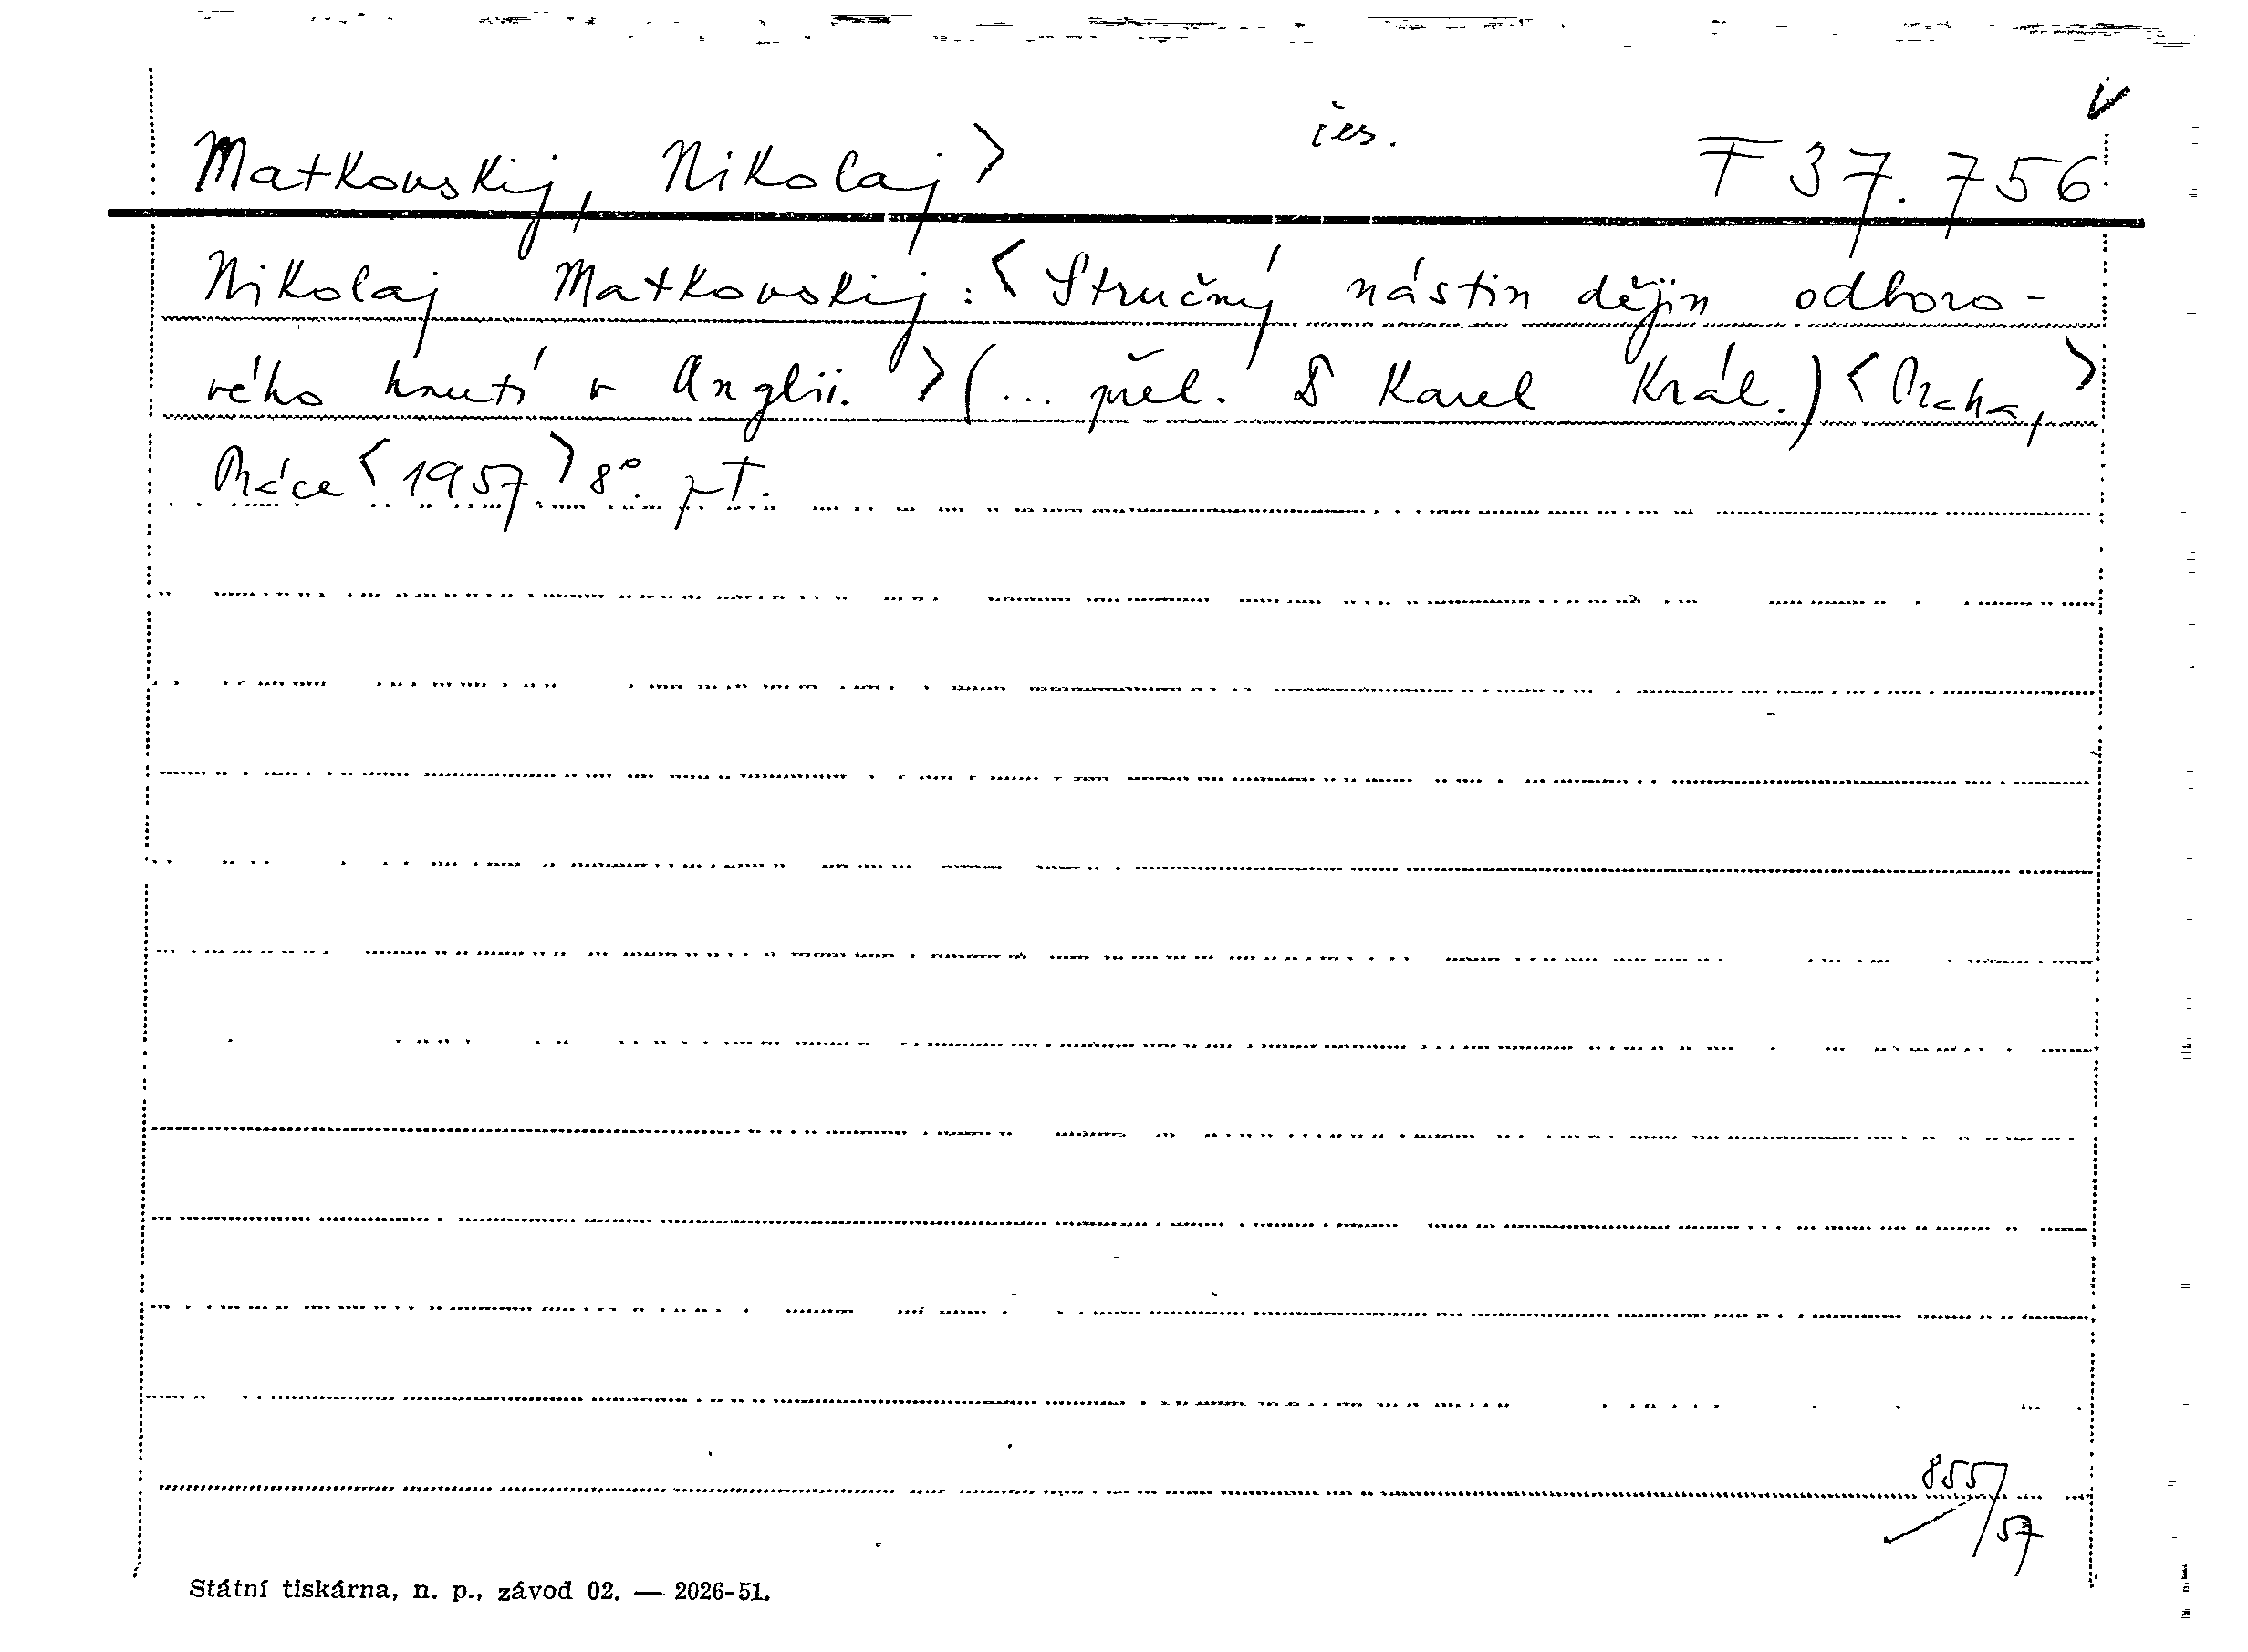 Matkovskij, Nikolaj> čes. F 37.756
Nikolaj Matkovskij: <Stručný nástin dějin odboro-
vého hnutí v Anglii.> (... přel. Karel Král.) <Praha,>
Práce <1957.> 8°.
855/57
Státní tiskárna, n. p., závod 02. — 2026-51.